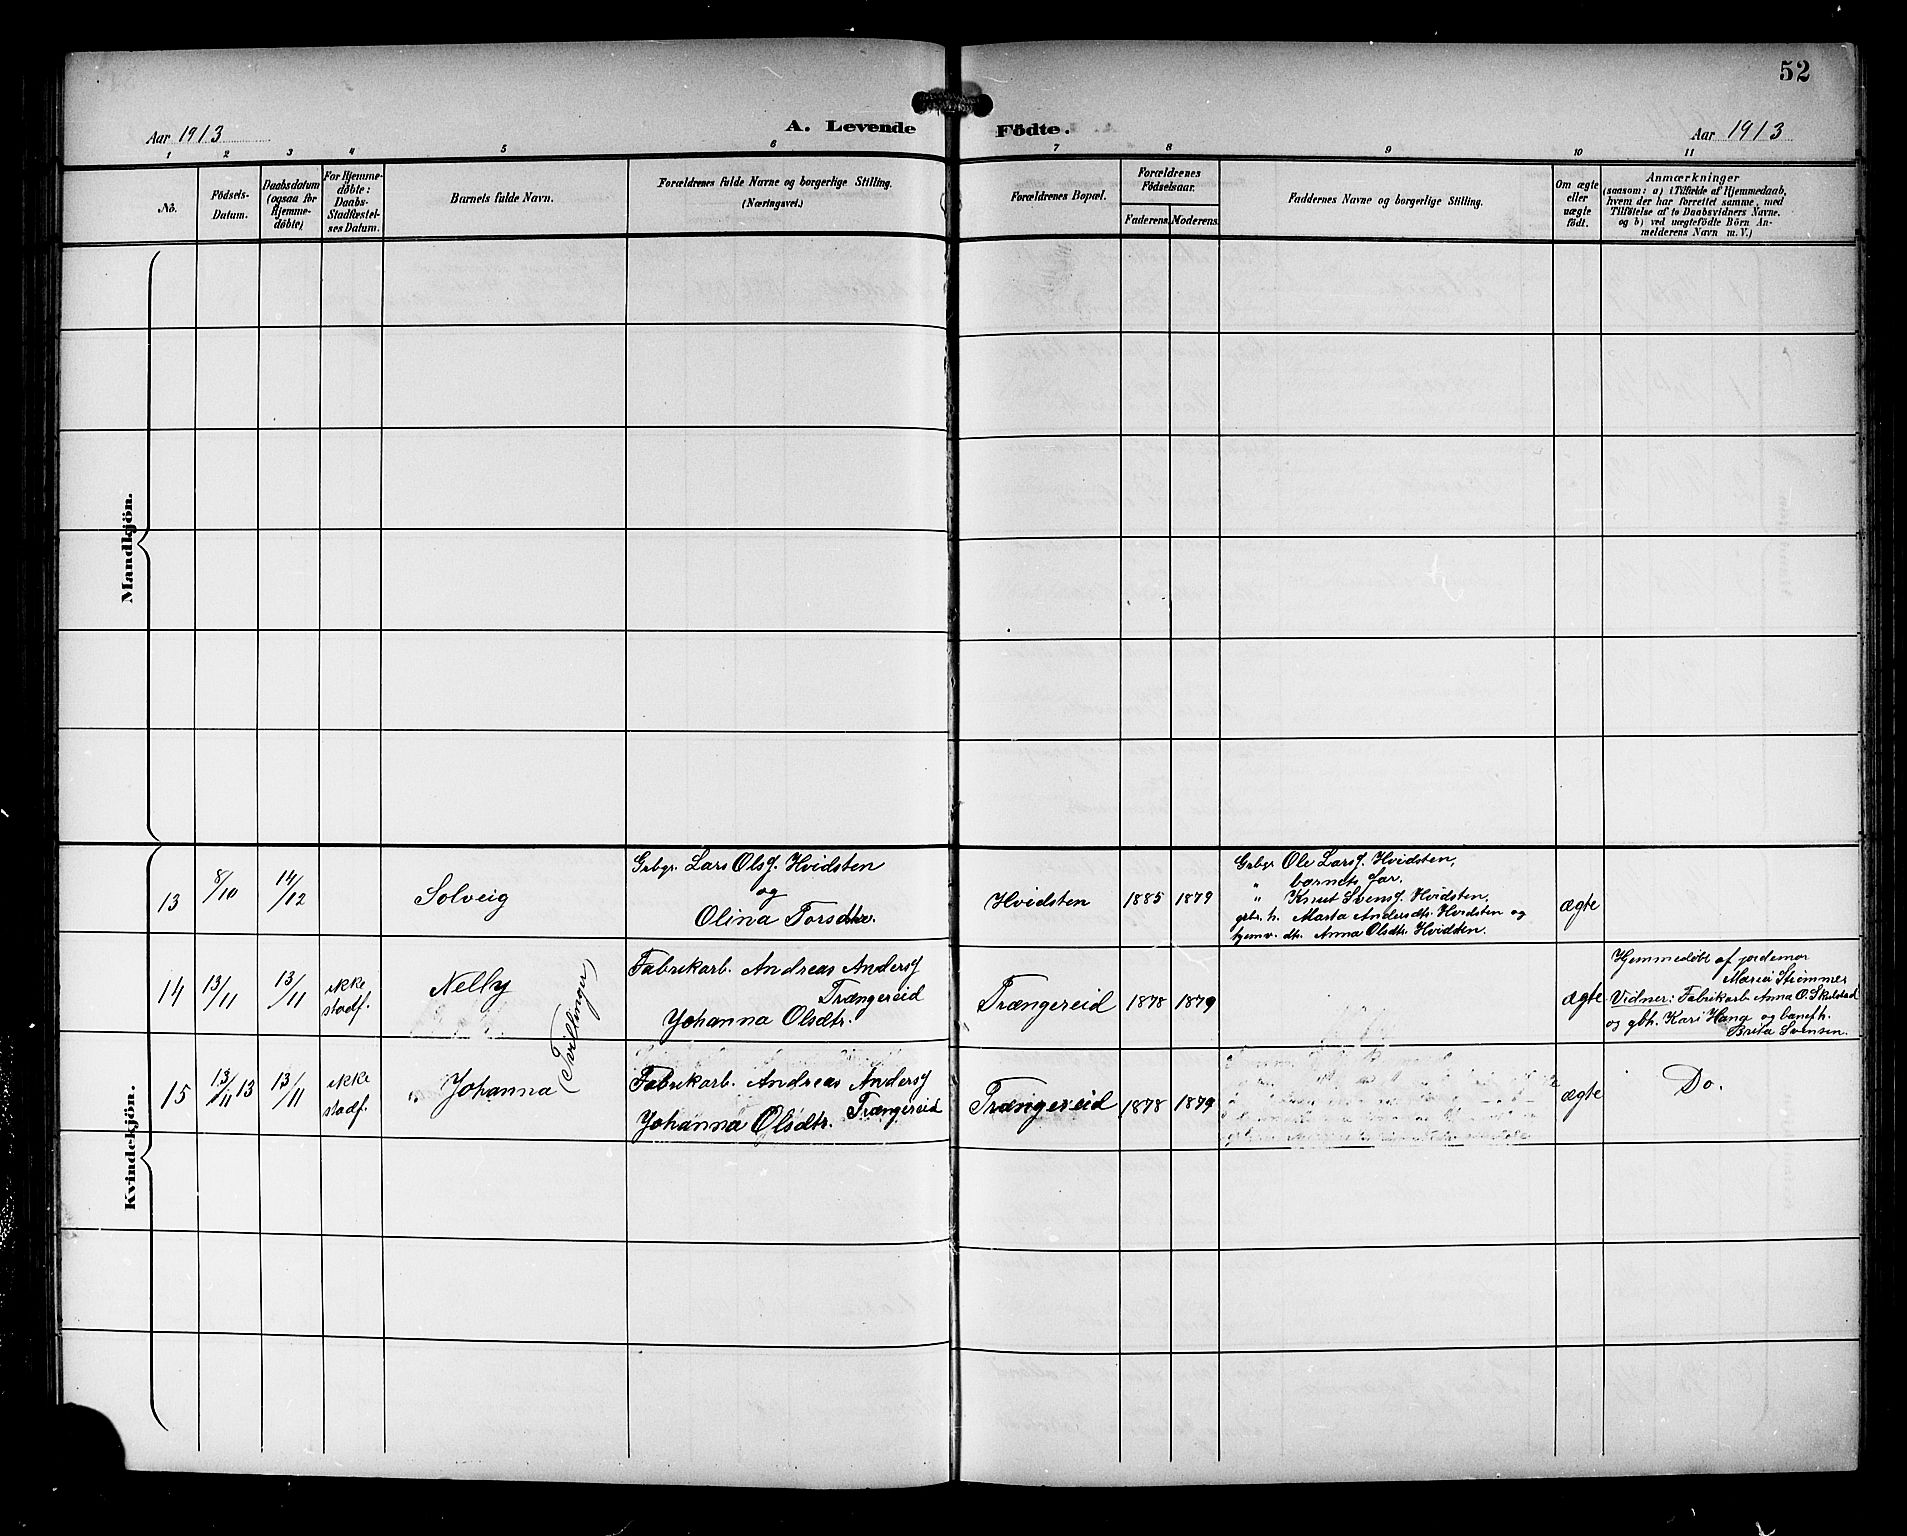 52
Aar 1913
A. Levende Födte.
Aar 1913
1 2 3 4 5 6 7 8 9 10 11
No.
Födsels-
Datum.
Daabsdatum
(ogsaa for
Hjemme-
döbte)
For Hjemme-
döbte:
Daabs-
Stadfæstel-
ses Datum.
Barnets fulde Navn.
Forældrenes fulde Navne og borgerlige Stilling.
(Næringsvei.)
Forældrenes Bopæl.
Forældrenes
Födselsaar.
Faderens. Moderens.
Faddernes Navne og borgerlige Stilling.
Om ægte
eller
uægte
födt.
Anmærkninger
(saasom: a) i Tilfælde af Hjemmedaab,
hvem der har forrettet samme, med
Tilföielse af to Daabsvidners Navne.
og b) ved uægtefödte Börn An-
melderens Navn m. V.)
Mandkjön.
Kvindekjön.
13
8/10
14/12
Solveig
Grbgr. Lars Olsf. Hvidsten
og
Olina Torsdtr.
Hvidsten
1885 1879
Grbgr Ole Larsf. Hvidsten,
" barnets far.
" Knut Svensf. Hvidsten.
grbr. h. Marta Andersdtr. Hvidsten og
hjemv. dtr. Anna Olsdtr. Hvidsten.
ægte
14
13/11
13/11
ikke
stadf.
Nelly
(Tvillinger)
Fabrikarb. Andreas Andersf
Trængereid
Johanna Olsdtr.
Trængereid
1878 1879
ægte
Hjemmedøbt af jordemor
Maria Strømmer
Vidner: Fabrikarb. Anna O. Skulstad
og gbh. Kari Haug og banefh.
Brita Svensen.
15
13/11 13
13/11
ikke
stadf.
Johanna
Fabrikarb. Andreas Andersf
Trængereid
Johanna Olsdtr.
Trængereid
1878 1879
ægte
Do.